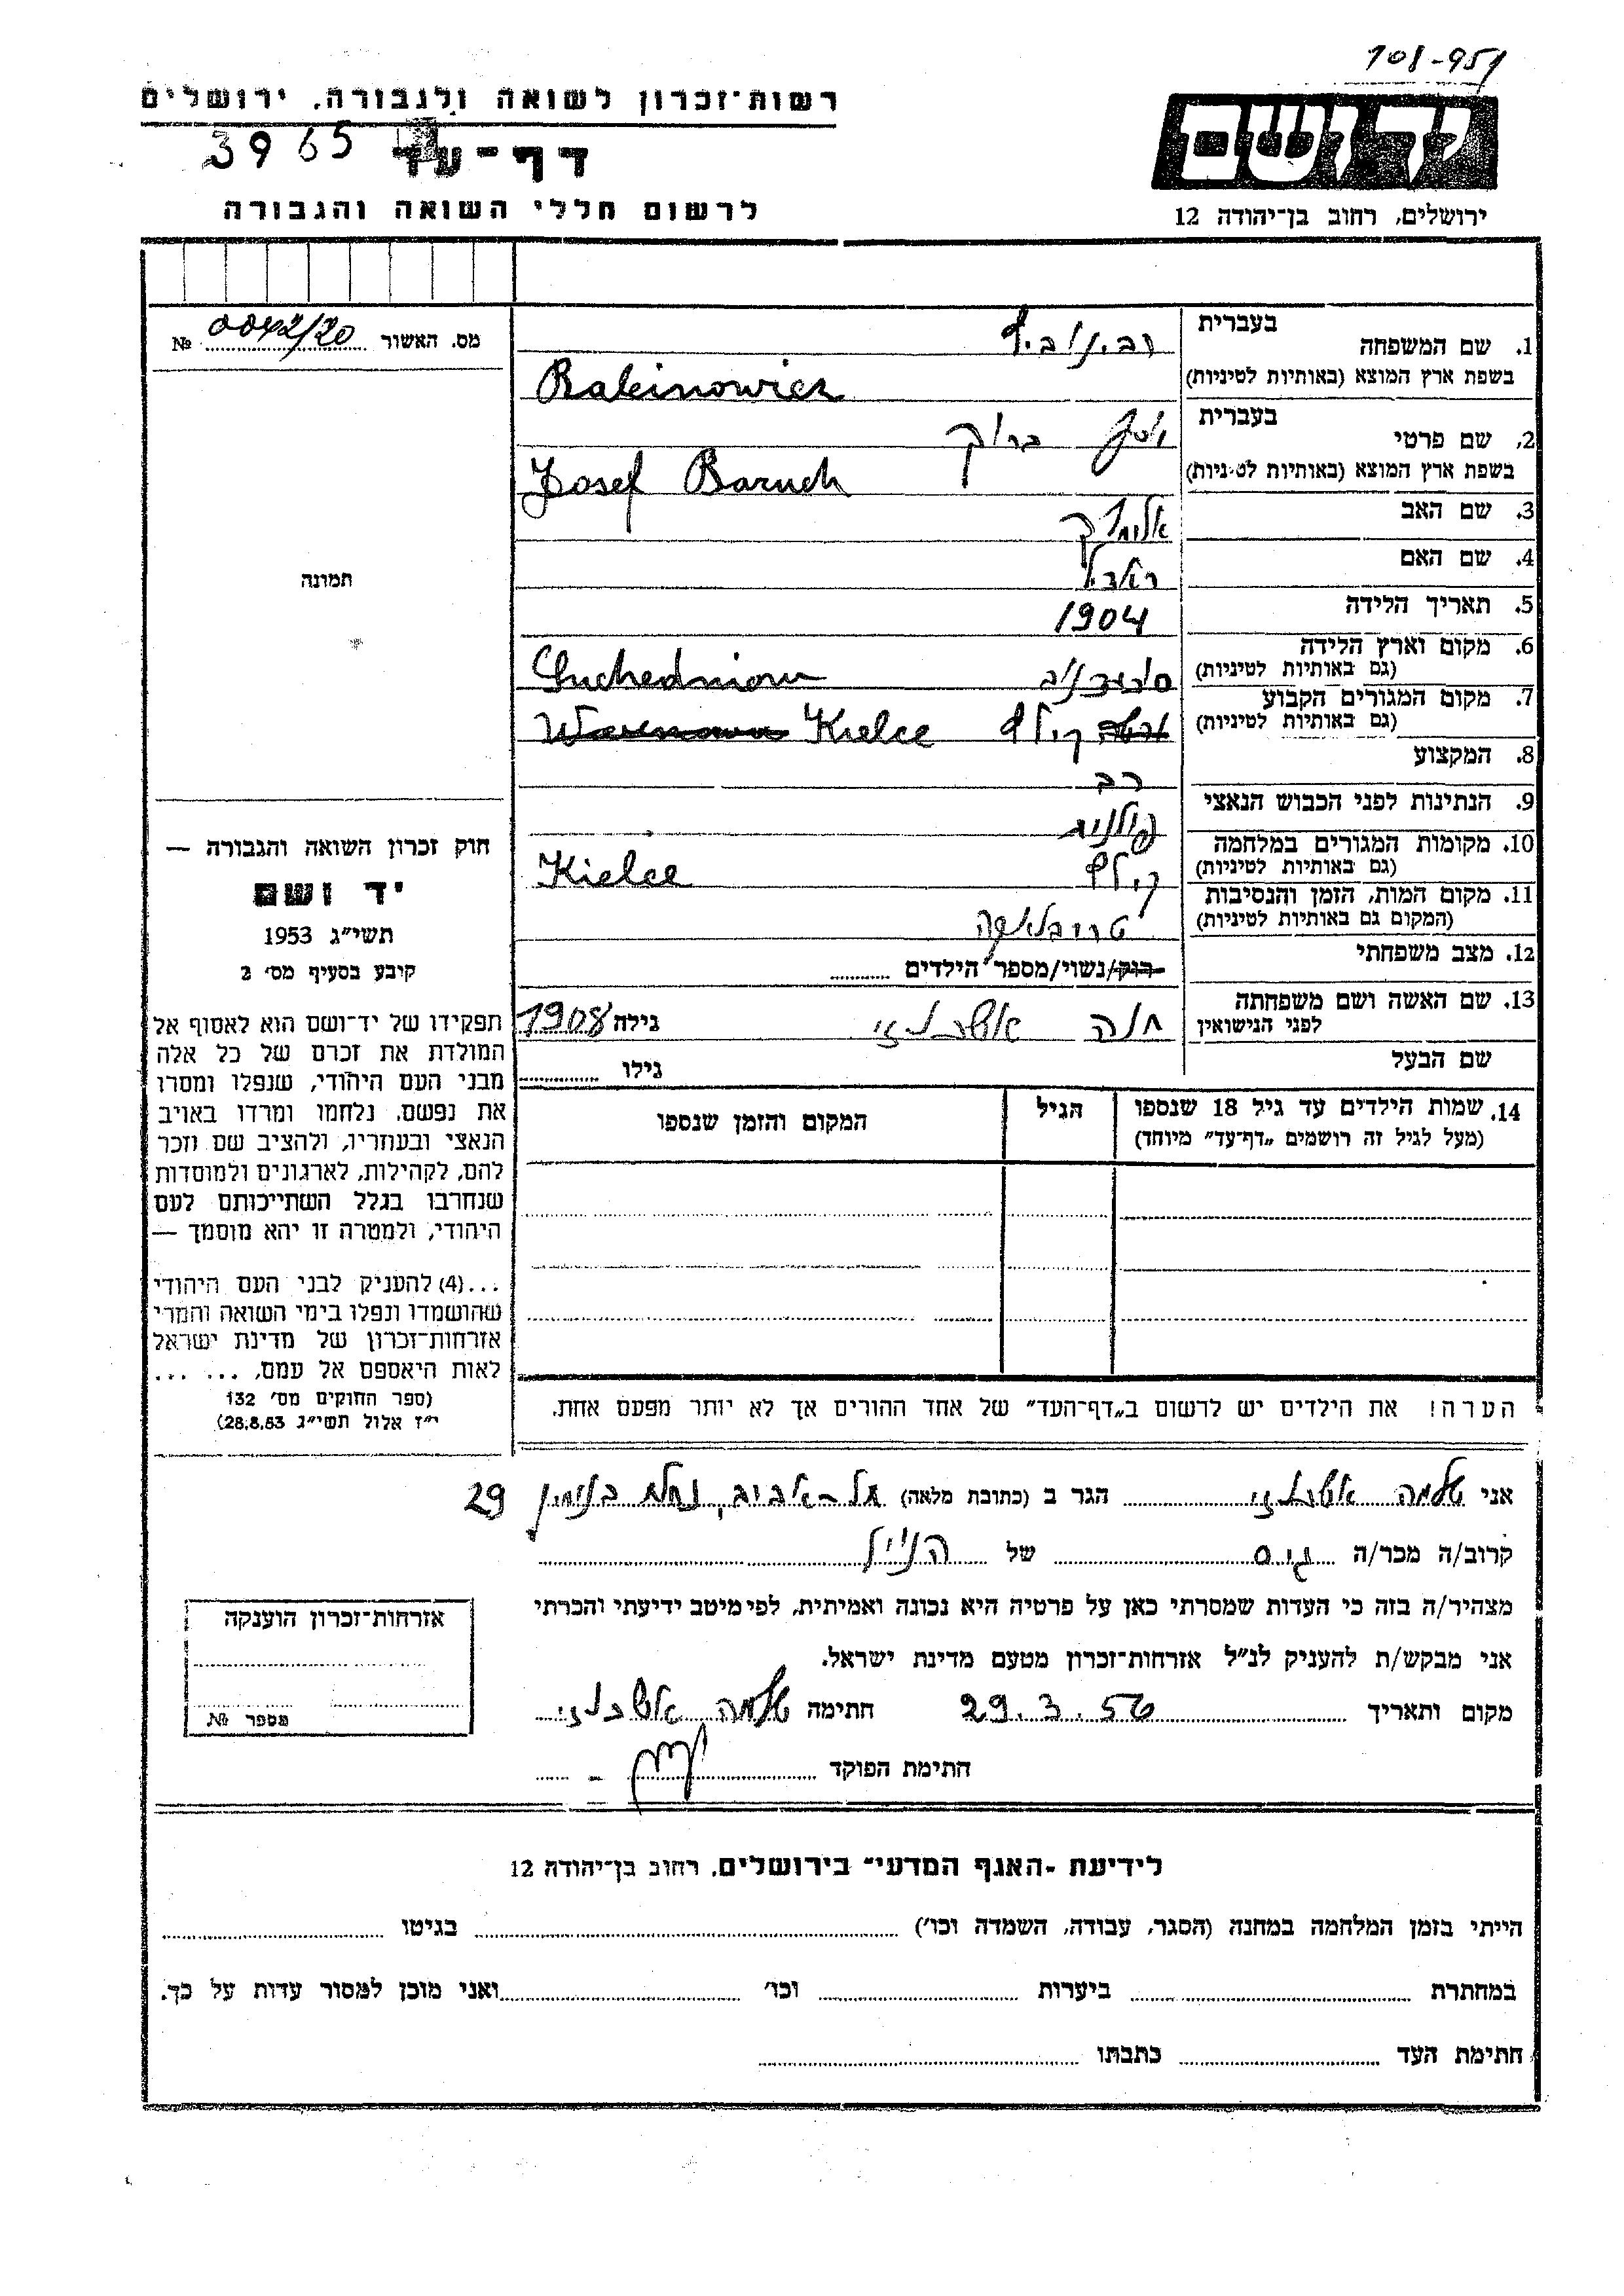 108-951
רשות־זכרון לשואה ולגבורה, ירושלים
יד ושם
3965
דף־עד
ירושלים, רחוב בן־יהודה 12
לרשום חללי השואה והגבורה
מס. האשור 0042/20 №
תמונה
חוק זכרון השואה והגבורה —
יד ושם
תשי״ג 1953
קובע בסעיף מס׳ 2
תפקידו של יד־ושם הוא לאסוף אל
המולדת את זכרם של כל אלה
מבני העם היהודי, שנפלו ומסרו
את נפשם, נלחמו ומרדו באויב
הנאצי ובעוזריו, ולהציב שם וזכר
להם, לקהילות, לארגונים ולמוסדות
שנחרבו בגלל השתייכותם לעם
היהודי, ולמטרה זו יהא מוסמך —
...(4) להעניק לבני העם היהודי
שהושמדו ונפלו בימי השואה והמרי
אזרחות־זכרון של מדינת ישראל
לאות היאספם אל עמם, ... ...
(ספר החוקים מס׳ 132
י״ז אלול תשי״ג 28.8.53)
1. שם המשפחה בעברית רבינוביץ
בשפת ארץ המוצא (באותיות לטיניות) Rabinowicz
2. שם פרטי בעברית יוסף ברוך
בשפת ארץ המוצא (באותיות לטיניות) Josef Baruch
3. שם האב אלימלך
4. שם האם
5. תאריך הלידה 1904
6. מקום וארץ הלידה
(גם באותיות לטיניות) סוכדניוב Suchedniow
7. מקום המגורים הקבוע
(גם באותיות לטיניות) ורשה קילץ Warszawa Kielce
8. המקצוע רב
9. הנתינות לפני הכבוש הנאצי פולנית
10. מקומות המגורים במלחמה
(גם באותיות לטיניות) קילץ Kielce
11. מקום המות, הזמן והנסיבות
(המקום גם באותיות לטיניות) טרובלינקה
12. מצב משפחתי רוק/נשוי/מספר הילדים
13. שם האשה ושם משפחתה
לפני הנישואין חנה אשכנזי גילה 1908
שם הבעל גילו
14. שמות הילדים עד גיל 18 שנספו הגיל המקום והזמן שנספו
(מעל לגיל זה רושמים „דף־עד״ מיוחד)
הערה! את הילדים יש לרשום ב„דף־העד״ של אחד ההורים אך לא יותר מפעם אחת.
אני שלמה אשכנזי הגר ב (כתובת מלאה) תל-אביב, נחלת בנימין 29
קרוב/ה מכר/ה גיס של הנ״ל
מצהיר/ה בזה כי העדות שמסרתי כאן על פרטיה היא נכונה ואמיתית, לפי מיטב ידיעתי והכרתי
אני מבקש/ת להעניק לנ״ל אזרחות־זכרון מטעם מדינת ישראל.
מקום ותאריך 29.3.56 חתימה שלמה אשכנזי
חתימת הפוקד
אזרחות־זכרון הוענקה
מספר №
לידיעת ־האגף המדעי״ בירושלים, רחוב בן־יהודה 12
הייתי בזמן המלחמה במחנה (הסגר, עבודה, השמדה וכו׳) בגיטו
במחתרת ביערות וכו׳ ואני מוכן למסור עדות על כך.
חתימת העד כתבתו